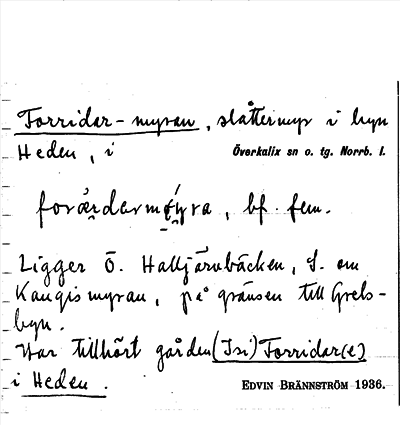 Torridar-myran, slåttermyr i byn
Heden, i Överkalix sn o. tg. Norrb. l.
bf. fem.
Ligger Ö. Halljärvbäcken, S. om
Kangismyran, på gränsen till Grels-
byn.
Har tillhört gården (Isi) Torridar(e)
i Heden. EDVIN BRÄNNSTRÖM 1936.